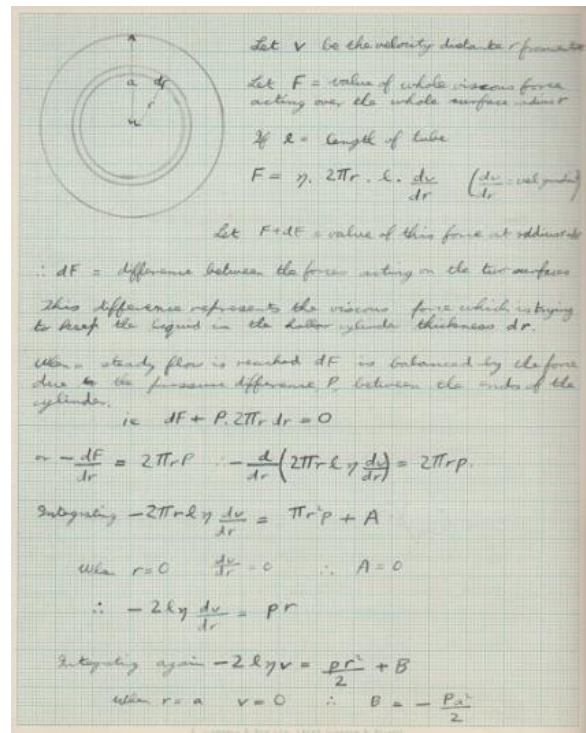 Let v be the velocity distance r from centre
a dr
r
Let F = value of whole viscous force
acting over the whole surface radius r
If l = length of tube
F = η. 2πr. l. dv/dr (dv/dr = vel gradient)
Let F+dF = value of this force at radius r+dr
∴ dF = difference between the forces acting on the two surfaces
This difference represents the viscous force which is trying
to keep the liquid in the hollow cylinder thickness dr.
When steady flow is reached dF is balanced by the force
due to the pressure difference P, between the ends of the
cylinder.
ie dF + P. 2πr dr = 0
or - dF/dr = 2πrP ∴ - d/dr (2πr l η dv/dr) = 2πrp.
Integrating - 2πr l η dv/dr = πr²p + A
When r = 0 dv/dr = 0 ∴ A = 0
∴ - 2 l η dv/dr = pr
Integrating again - 2 l η v = pr²/2 + B
When r = a v = 0 ∴ B = - Pa²/2